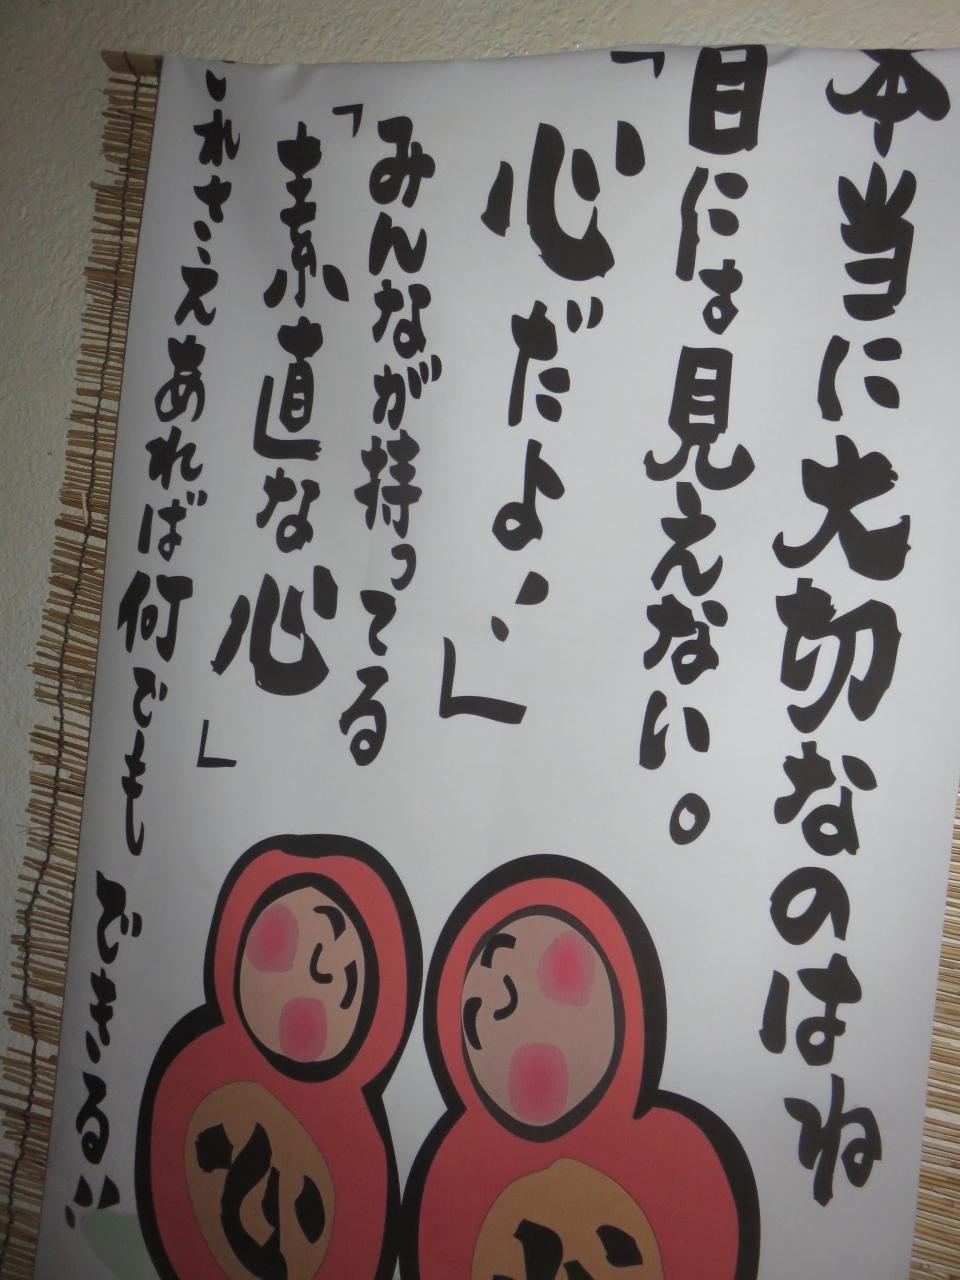 本当に大切なのはね
目には見えない。
「心だよ、、」
みんなが持ってる
「素直な心」
これさえあれば何でもできる!!